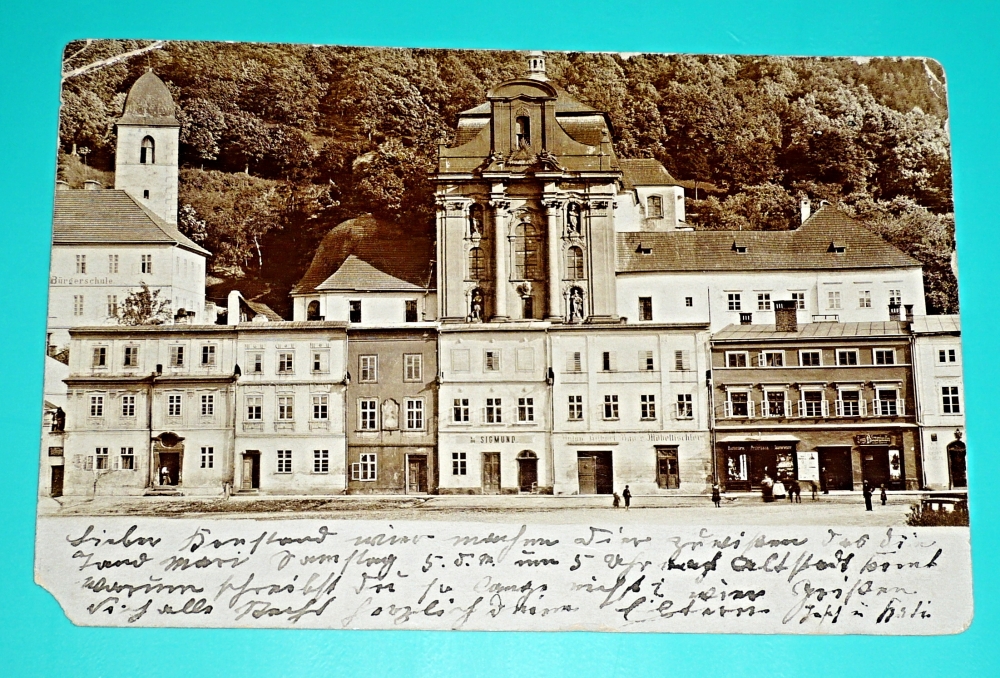 Bürgerschule.
SIGMUND.
Möbeltischler
Lieber Konstand wier machen Dier zuwißen das die
Tand Mari Samstag 5. d. M um 5 Uhr nach Altstadt komt
warum schreibst du so lange nicht? wier grißen
dich alle Recht herzlich deine Eltern